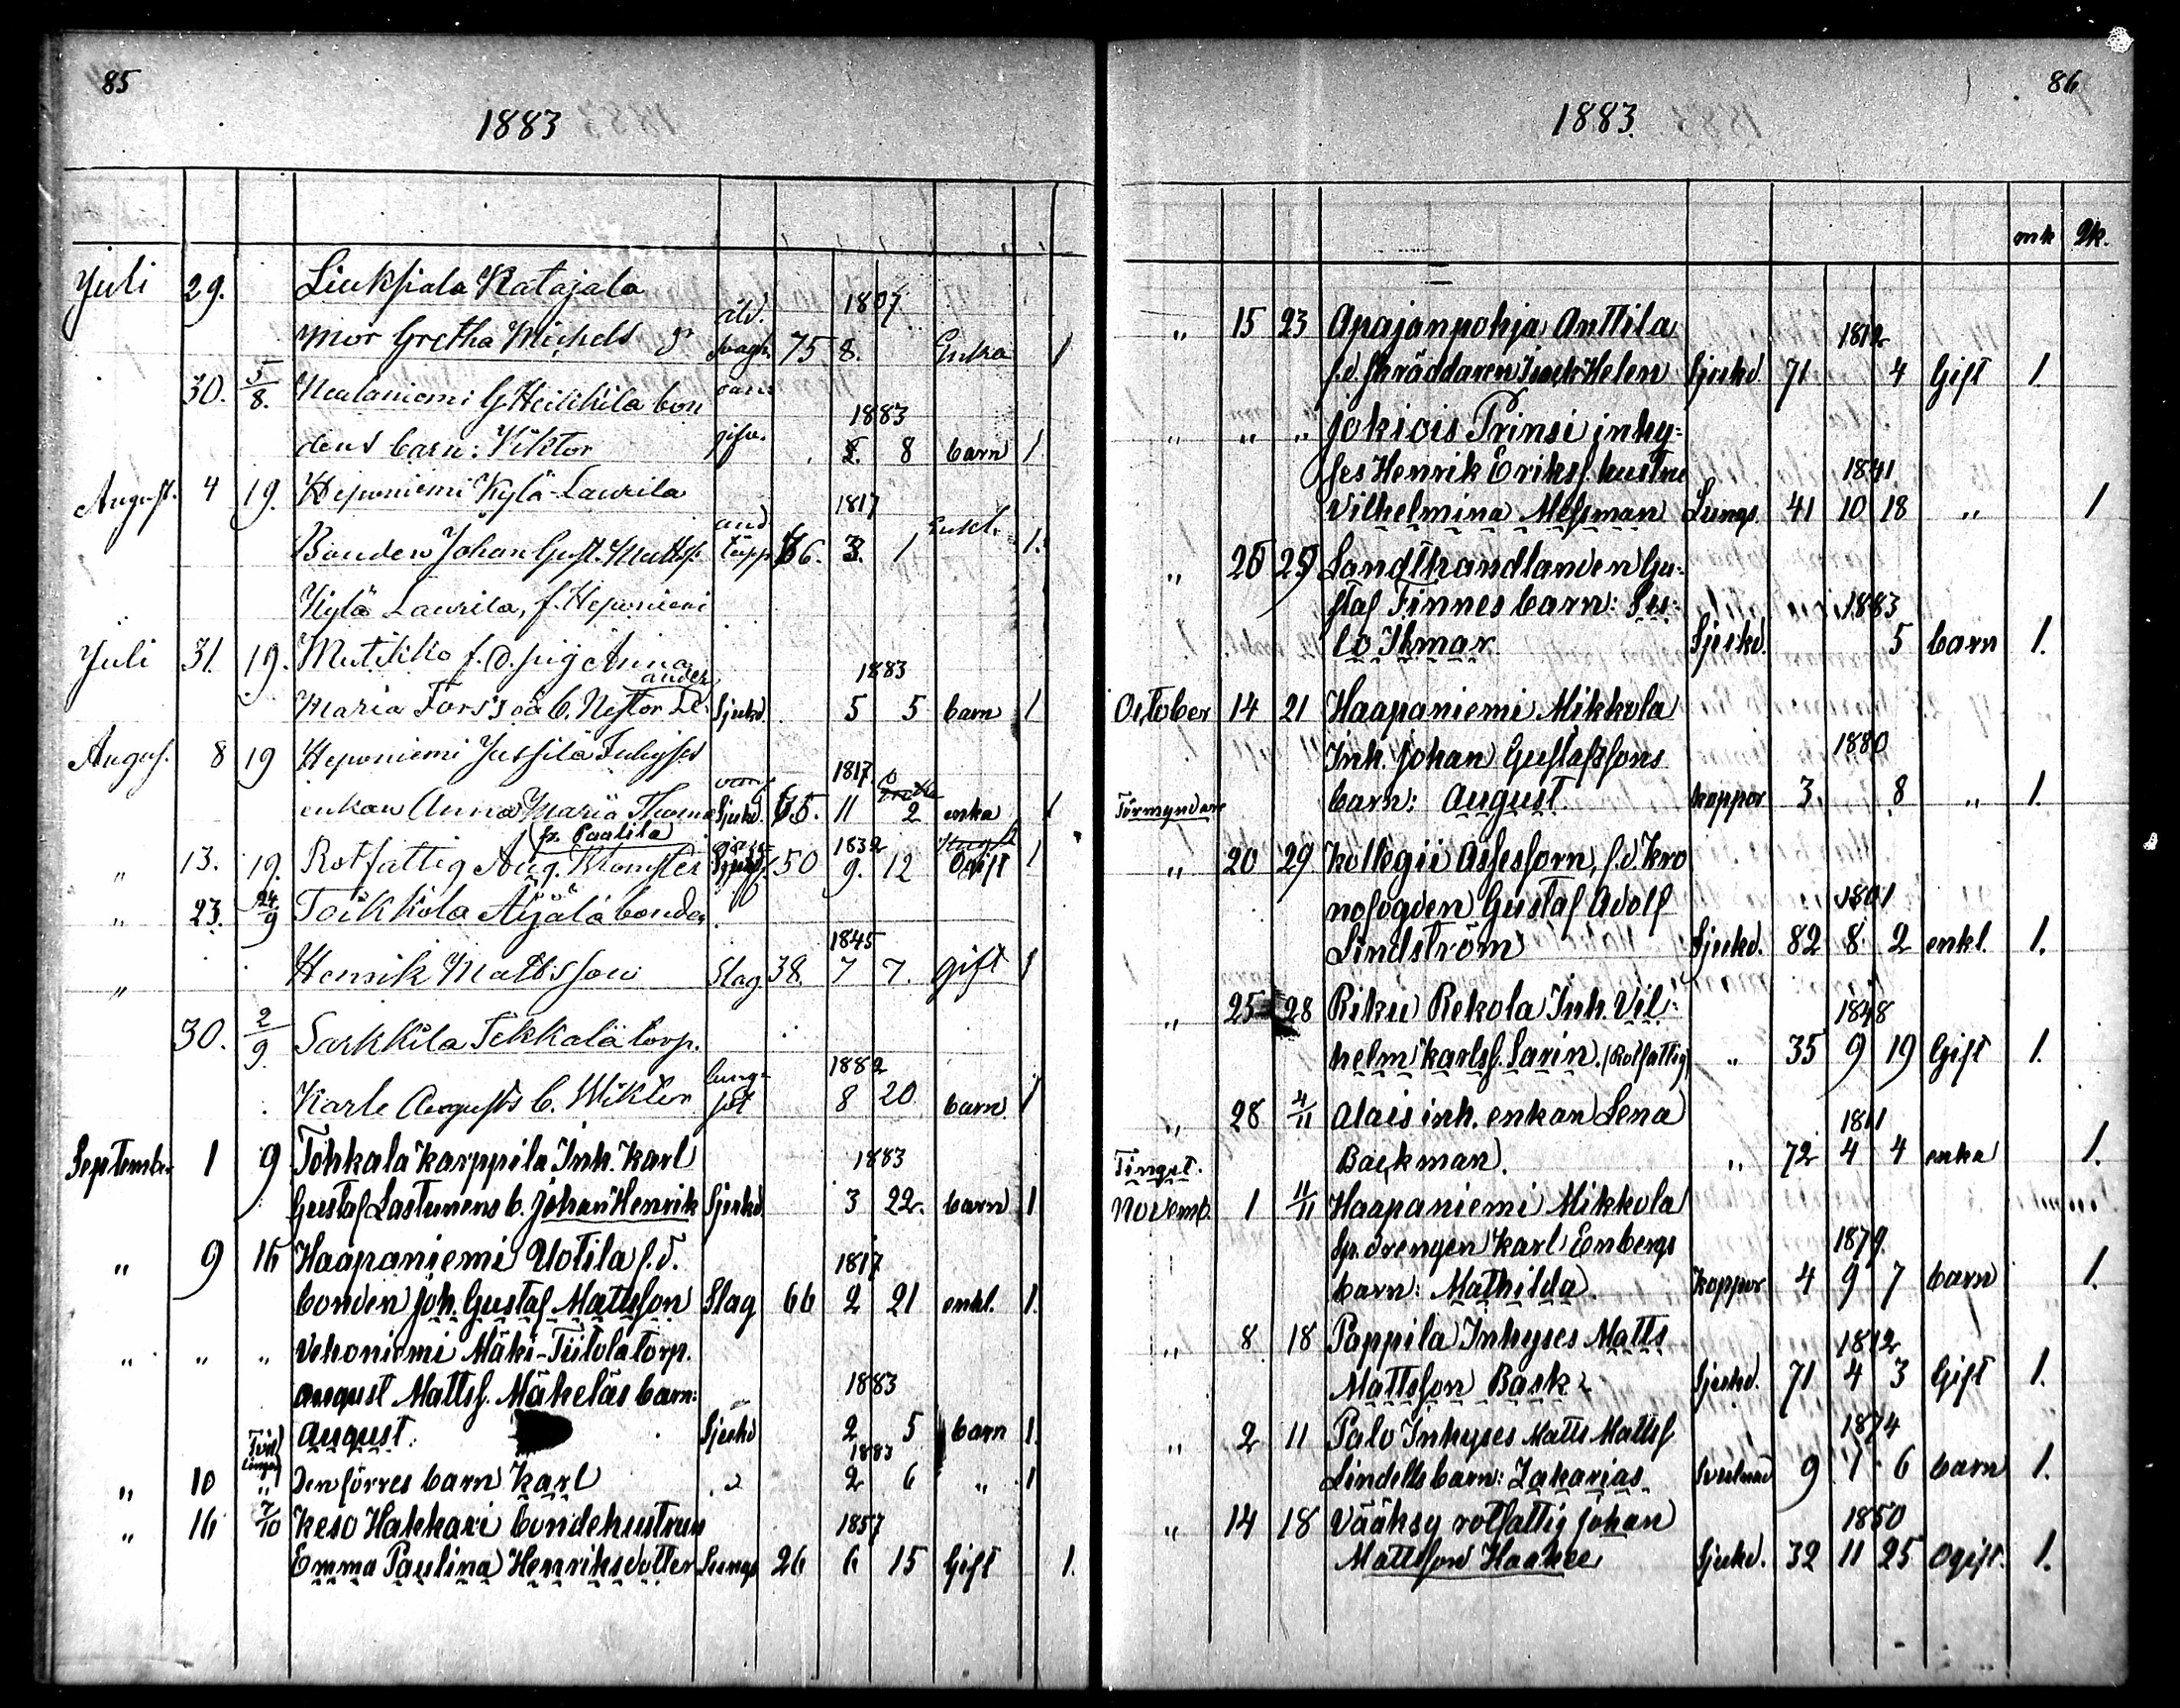 85
1883
Juli 29. Liuksiala Katajala
mor Gretha Michels dr ål. svagh. 75 8. 1807 Enka 1
30. 5/8. G Heikkilä bon
dens barn: Viktor 1883 8 barn 1
August. 4 19. Heponiemi Kylä-Laurila
Bonden Johan Gust. Matts. and. täpp. 66. 3. 1 1817 Enkl. 1.
Kylä Laurila, f. Heponiemi
Juli 31. 19. Mutikko f. d. pig Anna
Maria Forss oä b. Nestor Sjukd. 1883 5 5 barn 1
August. 8 19 Heponiemi Jussila
enkan Anna Maria Thomas Sjukd. 65. 1817 11 2 enka 1
(fr. Paalila)
„ 13. 19. Rotfattig Aug. Blomster 50 1832 9. 12 Ogift 1
„ 23. 24/9 Toikkola Äijälä bonden
„ Henrik Mattsson Slag 38. 1845 7 7. gift 1
30. 2/9. Sarkkila Tekkalä torp.
Karle Augusts b. Wiktor lung-sot 1882 8 20 barn 1
September 1 9 Tohkala Karppila Inh. Karl
Gustaf Lastunens b. Johan Henrik Sjukd. 1883 3 22. barn 1
„ 9 16 Haapaniemi Uotila f.d.
bonden Joh. Gustaf Mattsson Slag 66 1817 2 21 enkl. 1.
„ „ „ Vehoniemi Mäki-Tiitola torp.
August Mattss. Mäkeläs barn:
August. Sjukd 1883 2 5 barn 1.
„ 10 „ Den förres barn Karl „ 1883 2 6 „ 1
„ 16 7/10 Keso Hakkari bondehustrun
Emma Paulina Henriksdotter Lungs 26 1857 6 15 Gift 1.
86
1883.
mk qk.
„ 15 23 Apajanpohja Anttila
f.d. skräddaren Isak Helen Sjukd 71 1812 4 Gift 1.
„ „ „ Jokiois Prinsi inhy-
ses Henrik Erikss. hustru
Vilhelmina Messman Lungs. 41 1841. 10 18 „ 1
„ 25 29 Landthandlanden Gu-
staf Finnes barn:
lo Ilmar Sjukd. 1883 5 barn 1.
October 14 21 Haapaniemi Mikkola
Inh. Johan Gustafssons
barn: August. koppor 3 1880 8 „ 1.
Förmyndare
„ 20 29 Kollegii Assessorn, f.d. Kro
nofogden Gustaf Adolf
Lindström Sjukd. 82 1801 8 2 enkl. 1.
„ 25 28 Riku Rekola Inh. Vil-
helm Karlss. Sarin. (Rotfattig) „ 35 1848 9 19 Gift 1.
„ 28 4/11 Alais inh. enkan Lena
Backman. „ 72 1811 4 4 enka 1.
Tinget.
Novemb. 1 11/11 Haapaniemi Mikkola
Sp. drengen Karl Enbergs
barn: Mathilda. Koppor 4 1879. 9 7 barn 1.
„ 8 18 Pappila Inhyses Matts
Mattsson Bask Sjukd. 71 1812 4 3 Gift 1.
„ 2 11 Palo Inhyses Matts Mattss
Lindells barn: Zakarias 9 1874 1 6 barn 1.
„ 14 18 Vääksy rotfattig Johan
Mattsson Haakee Sjukd. 32 1850 11 25 ogift. 1.